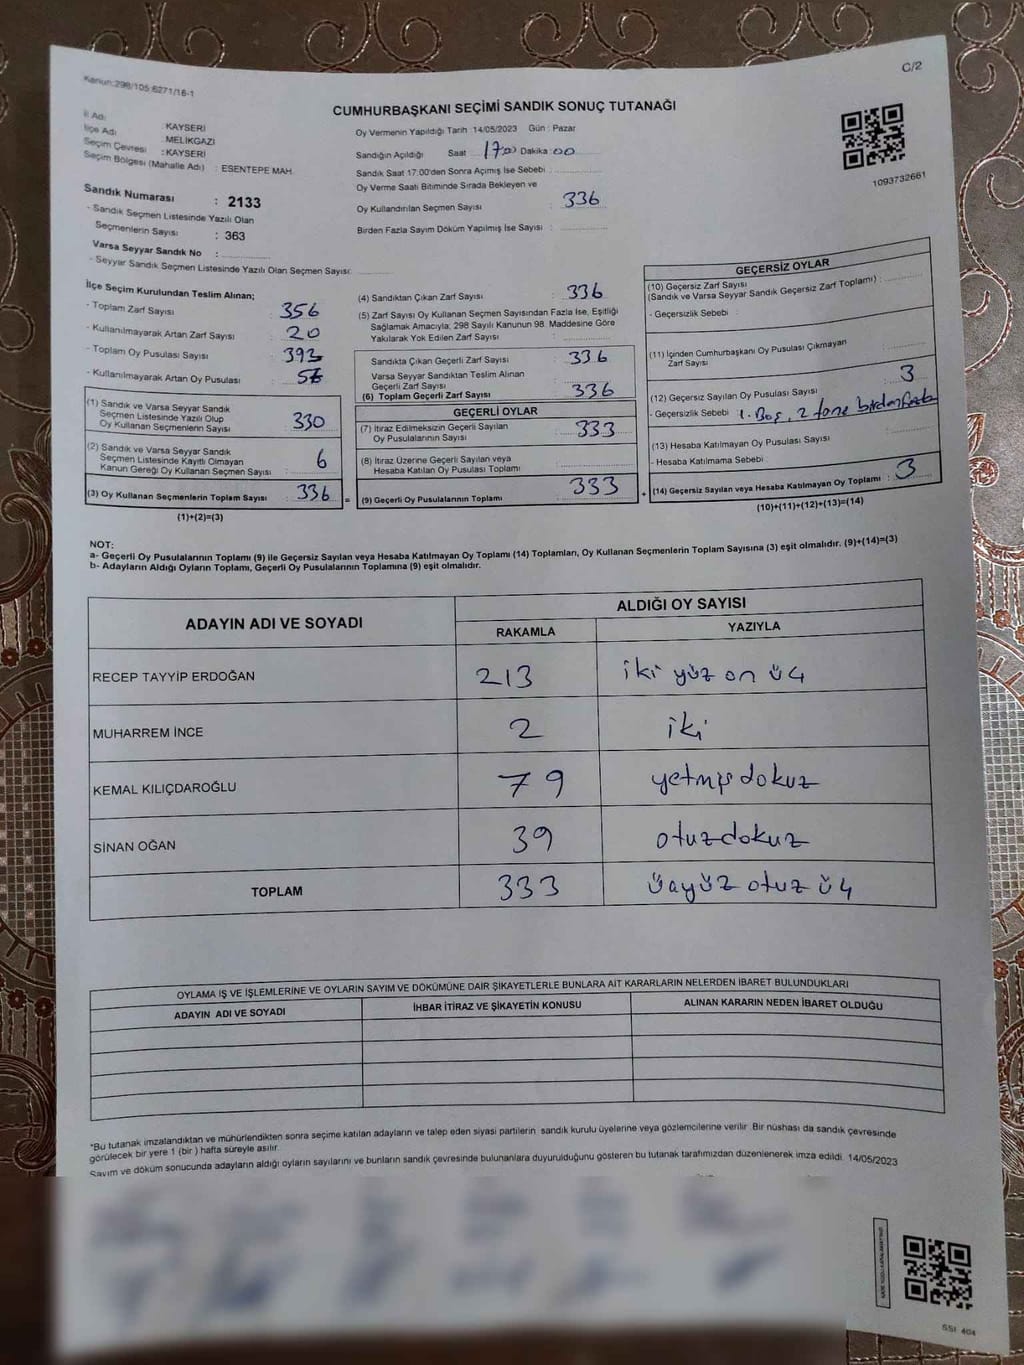 C/2
Kanun:298/105:6271/16-1
CUMHURBAŞKANI SEÇİMİ SANDIK SONUÇ TUTANAĞI
İl Adı : KAYSERİ
İlçe Adı : MELİKGAZİ
Seçim Çevresi : KAYSERİ
Seçim Bölgesi (Mahalle Adı) : ESENTEPE MAH.
Sandık Numarası : 2133
- Sandık Seçmen Listesinde Yazılı Olan
Seçmenlerin Sayısı : 363
Varsa Seyyar Sandık No :
- Seyyar Sandık Seçmen Listesinde Yazılı Olan Seçmen Sayısı:
Oy Vermenin Yapıldığı Tarih :14/05/2023 Gün : Pazar
Sandığın Açıldığı Saat 17:00 Dakika 00
Sandık Saat 17:00'den Sonra Açımış İse Sebebi :
Oy Verme Saati Bitiminde Sırada Bekleyen ve
Oy Kullandırılan Seçmen Sayısı : 336
Birden Fazla Sayım Döküm Yapılmış İse Sayısı :
1093732661
İlçe Seçim Kurulundan Teslim Alınan;
- Toplam Zarf Sayısı : 356
- Kullanılmayarak Artan Zarf Sayısı : 20
- Toplam Oy Pusulası Sayısı : 393
- Kullanılmayarak Artan Oy Pusulası :
(1) Sandık ve Varsa Seyyar Sandık
Seçmen Listesinde Yazılı Olup
Oy Kullanan Seçmenlerin Sayısı : 330
(2) Sandık ve Varsa Seyyar Sandık
Seçmen Listesinde Kayıtlı Olmayan
Kanun Gereği Oy Kullanan Seçmen Sayısı : 6
(3) Oy Kullanan Seçmenlerin Toplam Sayısı : 336 =
(1)+(2)=(3)
(4) Sandıktan Çıkan Zarf Sayısı : 336
(5) Zarf Sayısı Oy Kullanan Seçmen Sayısından Fazla İse, Eşitliği
Sağlamak Amacıyla; 298 Sayılı Kanunun 98. Maddesine Göre
Yakılarak Yok Edilen Zarf Sayısı :
Sandıkta Çıkan Geçerli Zarf Sayısı : 336
Varsa Seyyar Sandıktan Teslim Alınan
Geçerli Zarf Sayısı :
(6) Toplam Geçerli Zarf Sayısı : 336
GEÇERLİ OYLAR
(7) İtiraz Edilmeksizin Geçerli Sayılan
Oy Pusulalarının Sayısı : 333
(8) İtiraz Üzerine Geçerli Sayılan veya
Hesaba Katılan Oy Pusulası Toplamı :
(9) Geçerli Oy Pusulalarının Toplamı : 333 +
GEÇERSİZ OYLAR
(10) Geçersiz Zarf Sayısı
(Sandık ve Varsa Seyyar Sandık Geçersiz Zarf Toplamı) :
- Geçersizlik Sebebi :
(11) İçinden Cumhurbaşkanı Oy Pusulası Çıkmayan
Zarf Sayısı :
(12) Geçersiz Sayılan Oy Pusulası Sayısı : 3
- Geçersizlik Sebebi : 1. Boş, 2 tane birden fazla
(13) Hesaba Katılmayan Oy Pusulası Sayısı :
- Hesaba Katılmama Sebebi :
(14) Geçersiz Sayılan veya Hesaba Katılmayan Oy Toplamı : 3
(10)+(11)+(12)+(13)=(14)
NOT:
a- Geçerli Oy Pusulalarının Toplamı (9) ile Geçersiz Sayılan veya Hesaba Katılmayan Oy Toplamı (14) Toplamları, Oy Kullanan Seçmenlerin Toplam Sayısına (3) eşit olmalıdır. (9)+(14)=(3)
b- Adayların Aldığı Oyların Toplamı, Geçerli Oy Pusulalarının Toplamına (9) eşit olmalıdır.
ADAYIN ADI VE SOYADI
ALDIĞI OY SAYISI
RAKAMLA YAZIYLA
RECEP TAYYİP ERDOĞAN 213 iki yüz on üç
MUHARREM İNCE 2 iki
KEMAL KILIÇDAROĞLU 79 yetmiş dokuz
SİNAN OĞAN 39 otuzdokuz
TOPLAM 333 üçyüz otuz üç
OYLAMA İŞ VE İŞLEMLERİNE VE OYLARIN SAYIM VE DÖKÜMÜNE DAİR ŞİKAYETLERLE BUNLARA AİT KARARLARIN NELERDEN İBARET BULUNDUKLARI
ADAYIN ADI VE SOYADI İHBAR İTİRAZ VE ŞİKAYETİN KONUSU ALINAN KARARIN NEDEN İBARET OLDUĞU
*Bu tutanak imzalandıktan ve mühürlendikten sonra seçime katılan adayların ve talep eden siyasi partilerin sandık kurulu üyelerine veya gözlemcilerine verilir. Bir nüshası da sandık çevresinde
görülecek bir yere 1 (bir) hafta süreyle asılır.
Sayım ve döküm sonucunda adayların aldığı oyların sayılarını ve bunların sandık çevresinde bulunanlara duyurulduğunu gösteren bu tutanak tarafımızdan düzenlenerek imza edildi. 14/05/2023
SSI 404